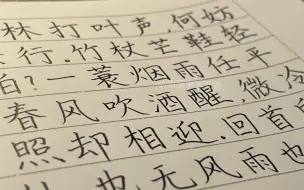 林打叶声,何妨
行.竹杖芒鞋轻
怕?一蓑烟雨任平
春风吹酒醒,微冷
照却相迎.回首
也无风雨也